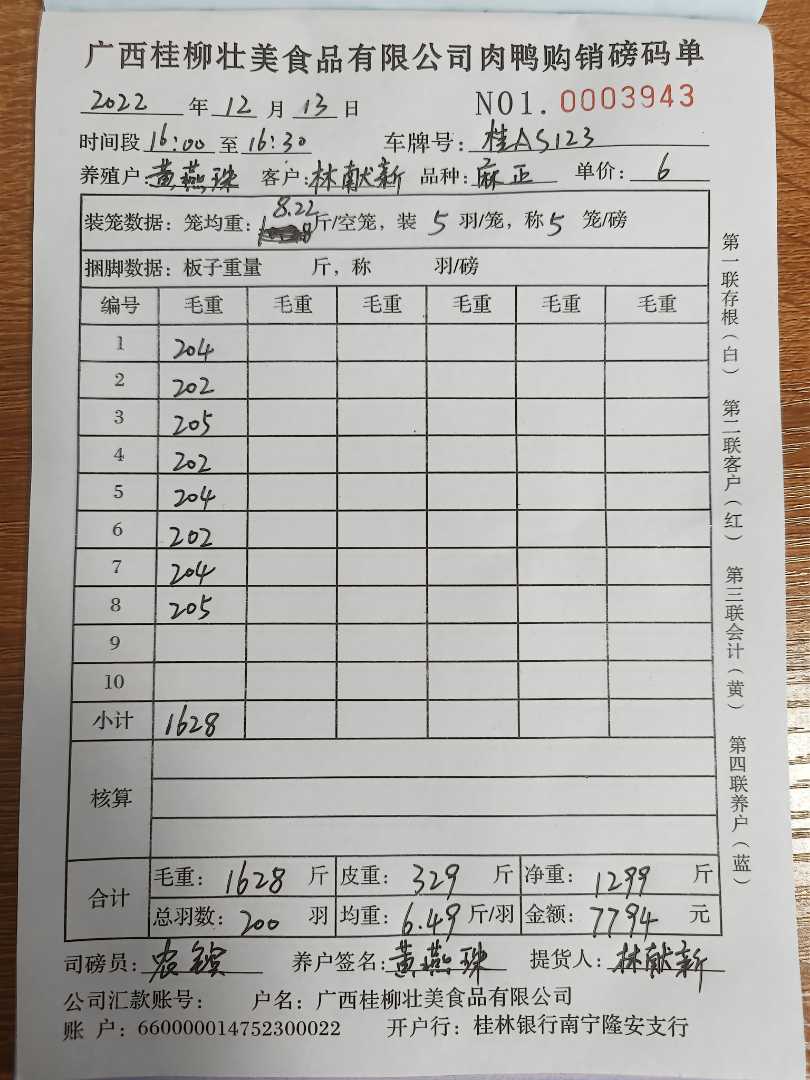 广西桂柳壮美食品有限公司肉鸭购销磅码单
2022 年 12 月 13 日 NO1. 0003943
时间段 16:00 至 16:30 车牌号: 桂AS123
养殖户: 黄燕珠 客户: 林献新 品种: 麻正 单价: 6
装笼数据: 笼均重: 8.22 斤/空笼, 装 5 羽/笼, 称 5 笼/磅
捆脚数据: 板子重量 斤, 称 羽/磅
编号 毛重 毛重 毛重 毛重 毛重 毛重
1 204
2 202
3 205
4 202
5 204
6 202
7 204
8 205
9
10
小计 1628
核算
合计 毛重: 1628 斤 皮重: 329 斤 净重: 1299 斤
总羽数: 200 羽 均重: 6.49 斤/羽 金额: 7794 元
司磅员: 农 养户签名: 黄燕珠 提货人: 林献新
公司汇款账号: 户名: 广西桂柳壮美食品有限公司
账 户: 660000014752300022 开户行: 桂林银行南宁隆安支行
第一联存根(白) 第二联客户(红) 第三联会计(黄) 第四联养户(蓝)